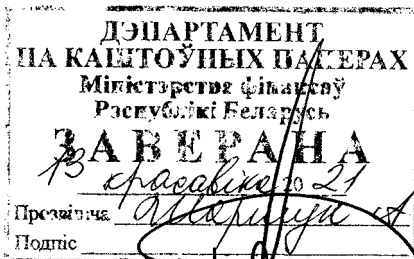 ДЭПАРТАМЕНТ
ПА КАШТОЎНЫХ ПАПЕРАХ
Міністэрства фінансаў
Рэспублікі Беларусь
ЗАВЕРАНА
13 красавіка 20 21
Прозвішча
Подпіс